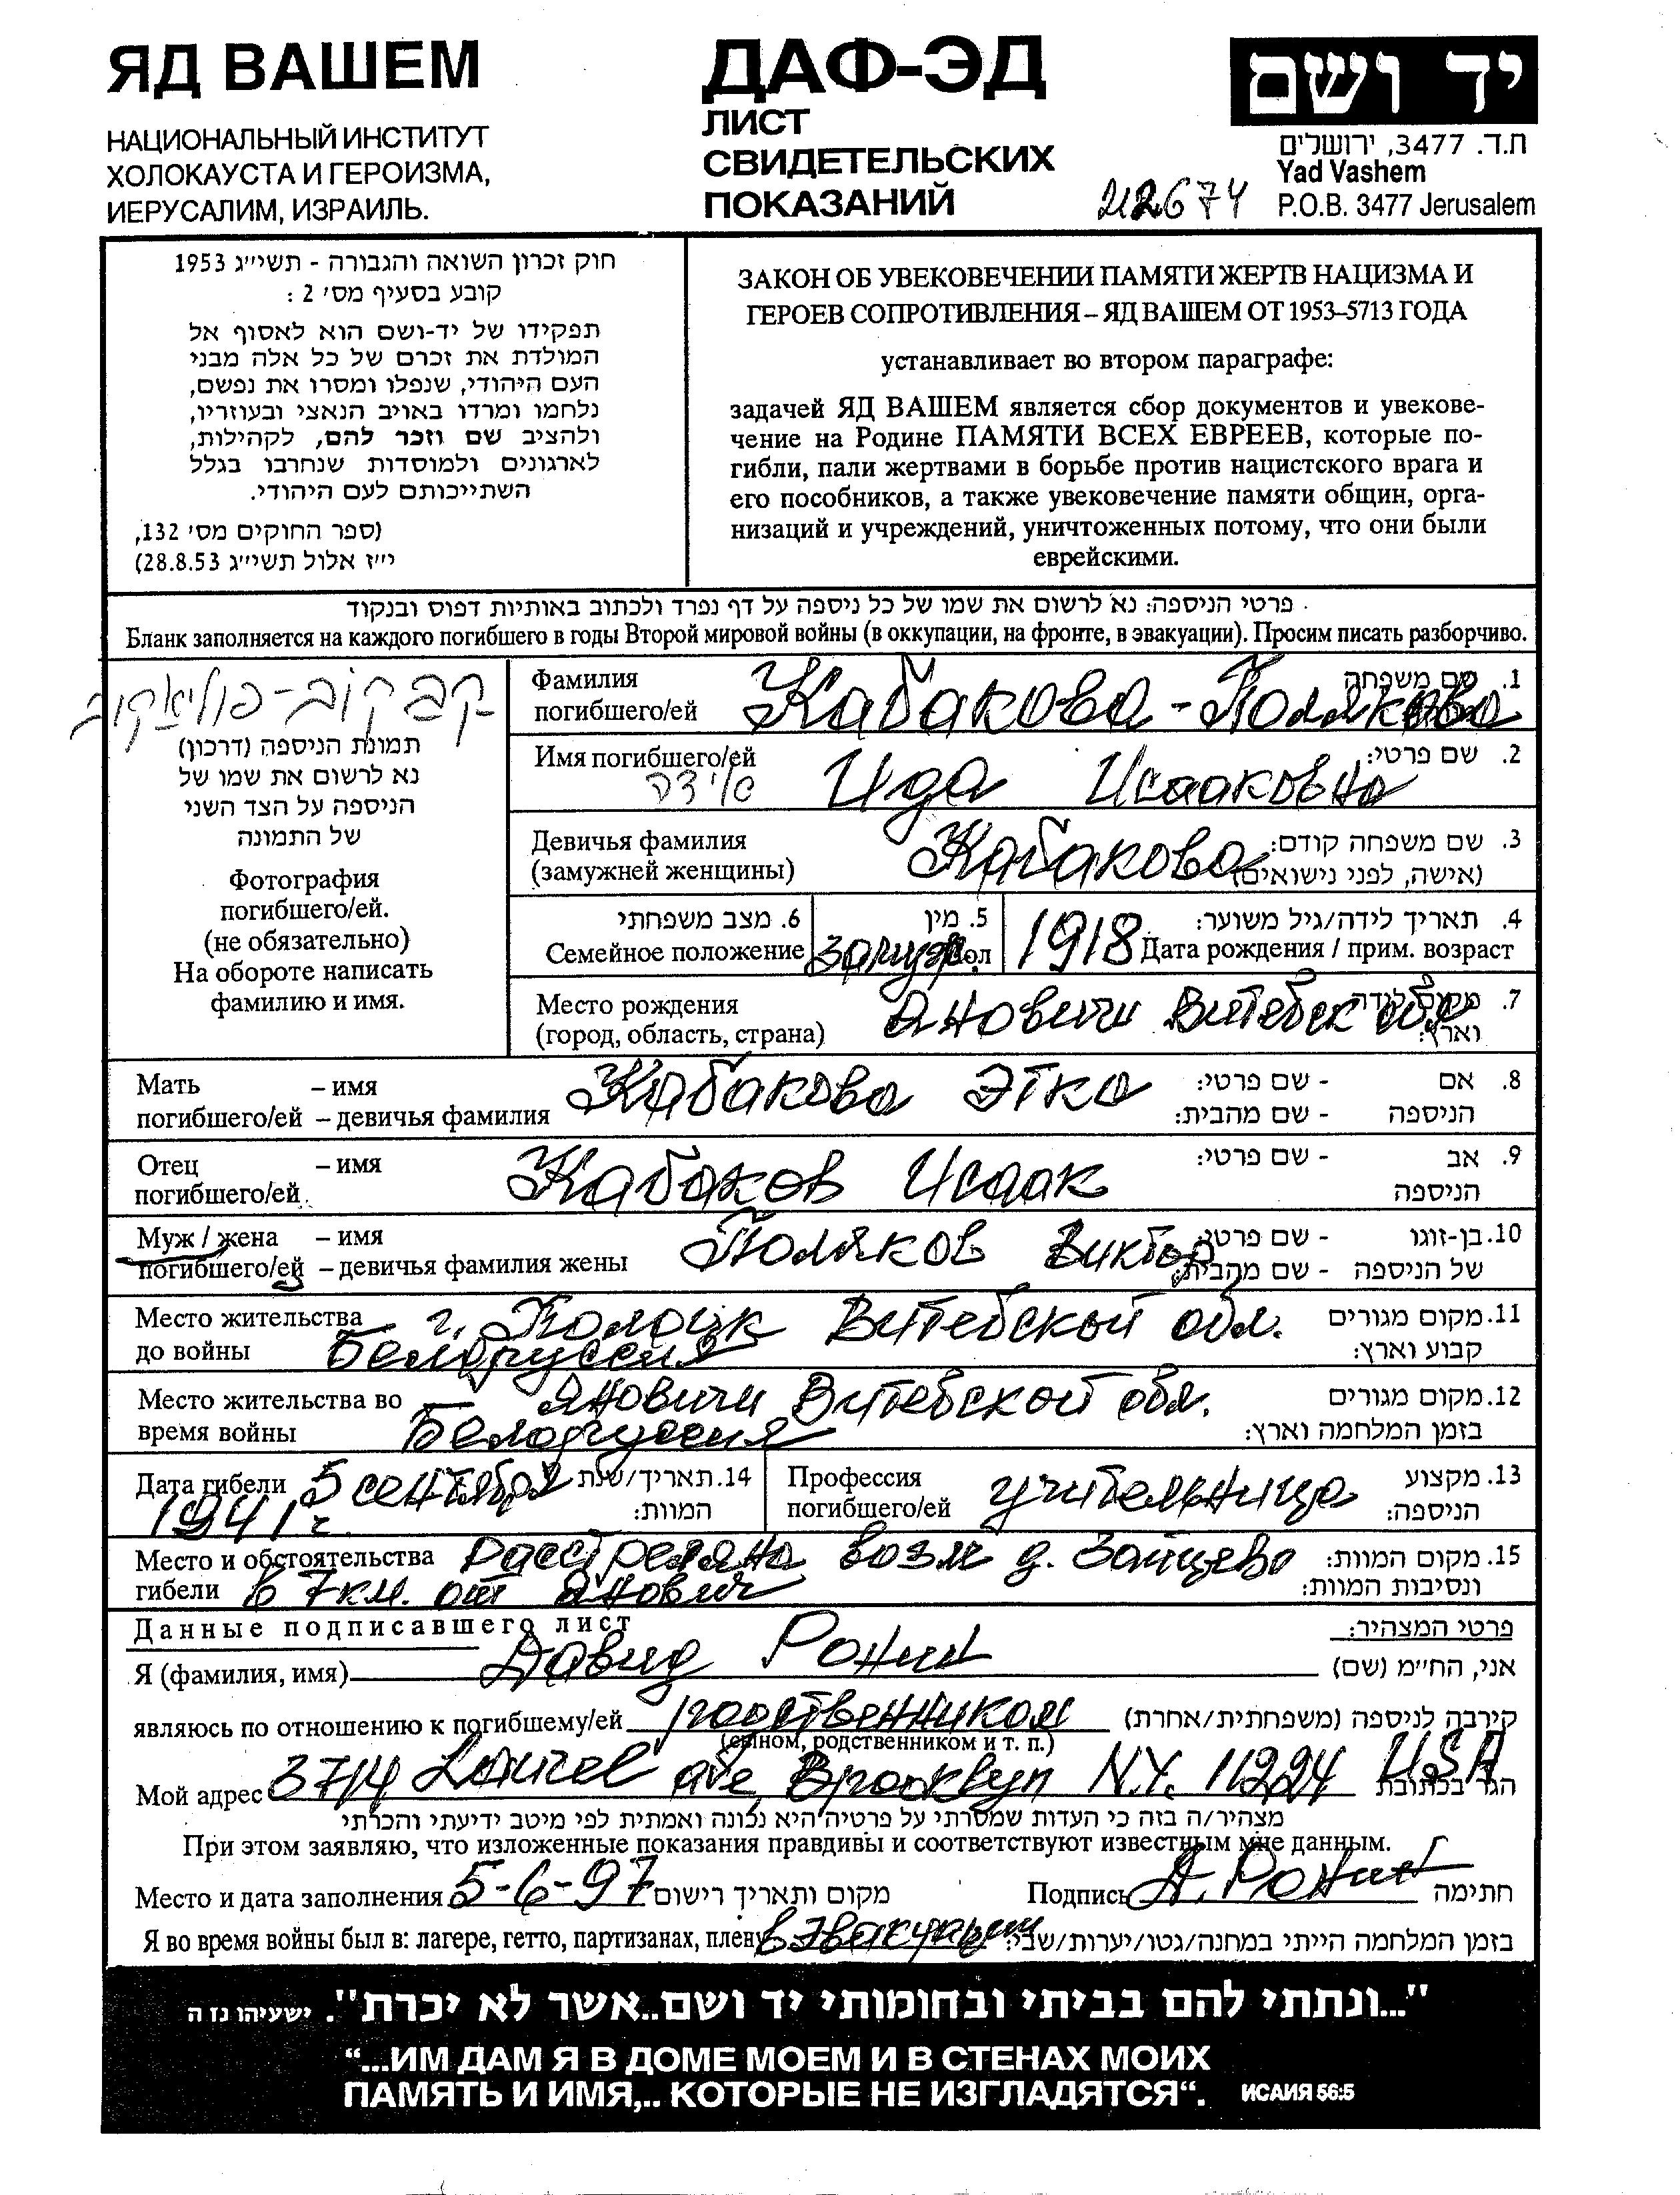 ЯД ВАШЕМ
НАЦИОНАЛЬНЫЙ ИНСТИТУТ
ХОЛОКАУСТА И ГЕРОИЗМА,
ИЕРУСАЛИМ, ИЗРАИЛЬ.
ДАФ-ЭД
ЛИСТ
СВИДЕТЕЛЬСКИХ
ПОКАЗАНИЙ
212674
יד ושם
ת.ד. 3477, ירושלים
Yad Vashem
P.O.B. 3477 Jerusalem
חוק זכרון השואה והגבורה - תשי״ג 1953
קובע בסעיף מס׳ 2 :
תפקידו של יד-ושם הוא לאסוף אל
המולדת את זכרם של כל אלה מבני
העם היהודי, שנפלו ומסרו את נפשם,
נלחמו ומרדו באויב הנאצי ובעוזריו,
ולהציב שם וזכר להם, לקהילות,
לארגונים ולמוסדות שנחרבו בגלל
השתייכותם לעם היהודי.
(ספר החוקים מס׳ 132,
י״ז אלול תשי״ג 28.8.53)
ЗАКОН ОБ УВЕКОВЕЧЕНИИ ПАМЯТИ ЖЕРТВ НАЦИЗМА И
ГЕРОЕВ СОПРОТИВЛЕНИЯ – ЯД ВАШЕМ ОТ 1953–5713 ГОДА
устанавливает во втором параграфе:
задачей ЯД ВАШЕМ является сбор документов и увекове-
чение на Родине ПАМЯТИ ВСЕХ ЕВРЕЕВ, которые по-
гибли, пали жертвами в борьбе против нацистского врага и
его пособников, а также увековечение памяти общин, орга-
низаций и учреждений, уничтоженных потому, что они были
еврейскими.
פרטי הניספה: נא לרשום את שמו של כל ניספה על דף נפרד ולכתוב באותיות דפוס ובנקוד
Бланк заполняется на каждого погибшего в годы Второй мировой войны (в оккупации, на фронте, в эвакуации). Просим писать разборчиво.
קבקוב-פוליאקוב
תמונת הניספה (דרכון)
נא לרשום את שמו של
הניספה על הצד השני
של התמונה
Фотография
погибшего/ей.
(не обязательно)
На обороте написать
фамилию и имя.
Фамилия
погибшего/ей
Кабакова-Полякова
1. שם משפחה
Имя погибшего/ей
אידה
Ида Исааковна
2. שם פרטי:
Девичья фамилия
(замужней женщины)
Кабакова
3. שם משפחה קודם:
(אישה, לפני נישואים)
6. מצב משפחתי
Семейное положение
замуж.
5. מין
Пол
1918
4. תאריך לידה/גיל משוער:
Дата рождения / прим. возраст
Место рождения
(город, область, страна)
Яновичи Витебск обл
7. מקום לידה
וארץ:
Мать – имя
погибшего/ей – девичья фамилия
Кабакова Этка
8. אם - שם פרטי:
הניספה - שם מהבית:
Отец – имя
погибшего/ей
Кабаков Исаак
9. אב - שם פרטי:
הניספה
Муж / жена – имя
погибшего/ей – девичья фамилия жены
Поляков Виктор
10. בן-זוגו - שם פרטי:
של הניספה - שם מהבית:
Место жительства
до войны
г. Полоцк Витебской обл.
Белоруссия
11. מקום מגורים
קבוע וארץ:
Место жительства во
время войны
Яновичи Витебской обл.
Белоруссия
12. מקום מגורים
בזמן המלחמה וארץ:
Дата гибели 5 сентября
1941 г.
14. תאריך/שנת
המוות:
Профессия
погибшего/ей
учительница
13. מקצוע
הניספה:
Место и обстоятельства
гибели
Расстреляна возле д. Зайцево
в 7 км. от Янович
15. מקום המוות:
ונסיבות המוות:
Данные подписавшего лист
פרטי המצהיר:
Я (фамилия, имя) Давид Ронин אני, החי״מ (שם)
являюсь по отношению к погибшему/ей родственником קירבה לניספה (משפחתית/אחרת)
(сыном, родственником и т. п.)
Мой адрес 3714 Laurel ave, Brooklyn N.Y. 11224 USA הגר בכתובת
מצהיר/ה בזה כי העדות שמסרתי על פרטיה היא נכונה ואמתית לפי מיטב ידיעתי והכרתי
При этом заявляю, что изложенные показания правдивы и соответствуют известным мне данным.
Место и дата заполнения 5-6-97 מקום ותאריך רישום Подпись Д. Ронин חתימה
Я во время войны был в: лагере, гетто, партизанах, плену в эвакуации בזמן המלחמה הייתי במחנה/גטו/יערות/שבי:
"...ונתתי להם בביתי ובחומותי יד ושם..אשר לא יכרת". ישעיהו נז ה
“...ИМ ДАМ Я В ДОМЕ МОЕМ И В СТЕНАХ МОИХ
ПАМЯТЬ И ИМЯ,.. КОТОРЫЕ НЕ ИЗГЛАДЯТСЯ“. ИСАИЯ 56:5